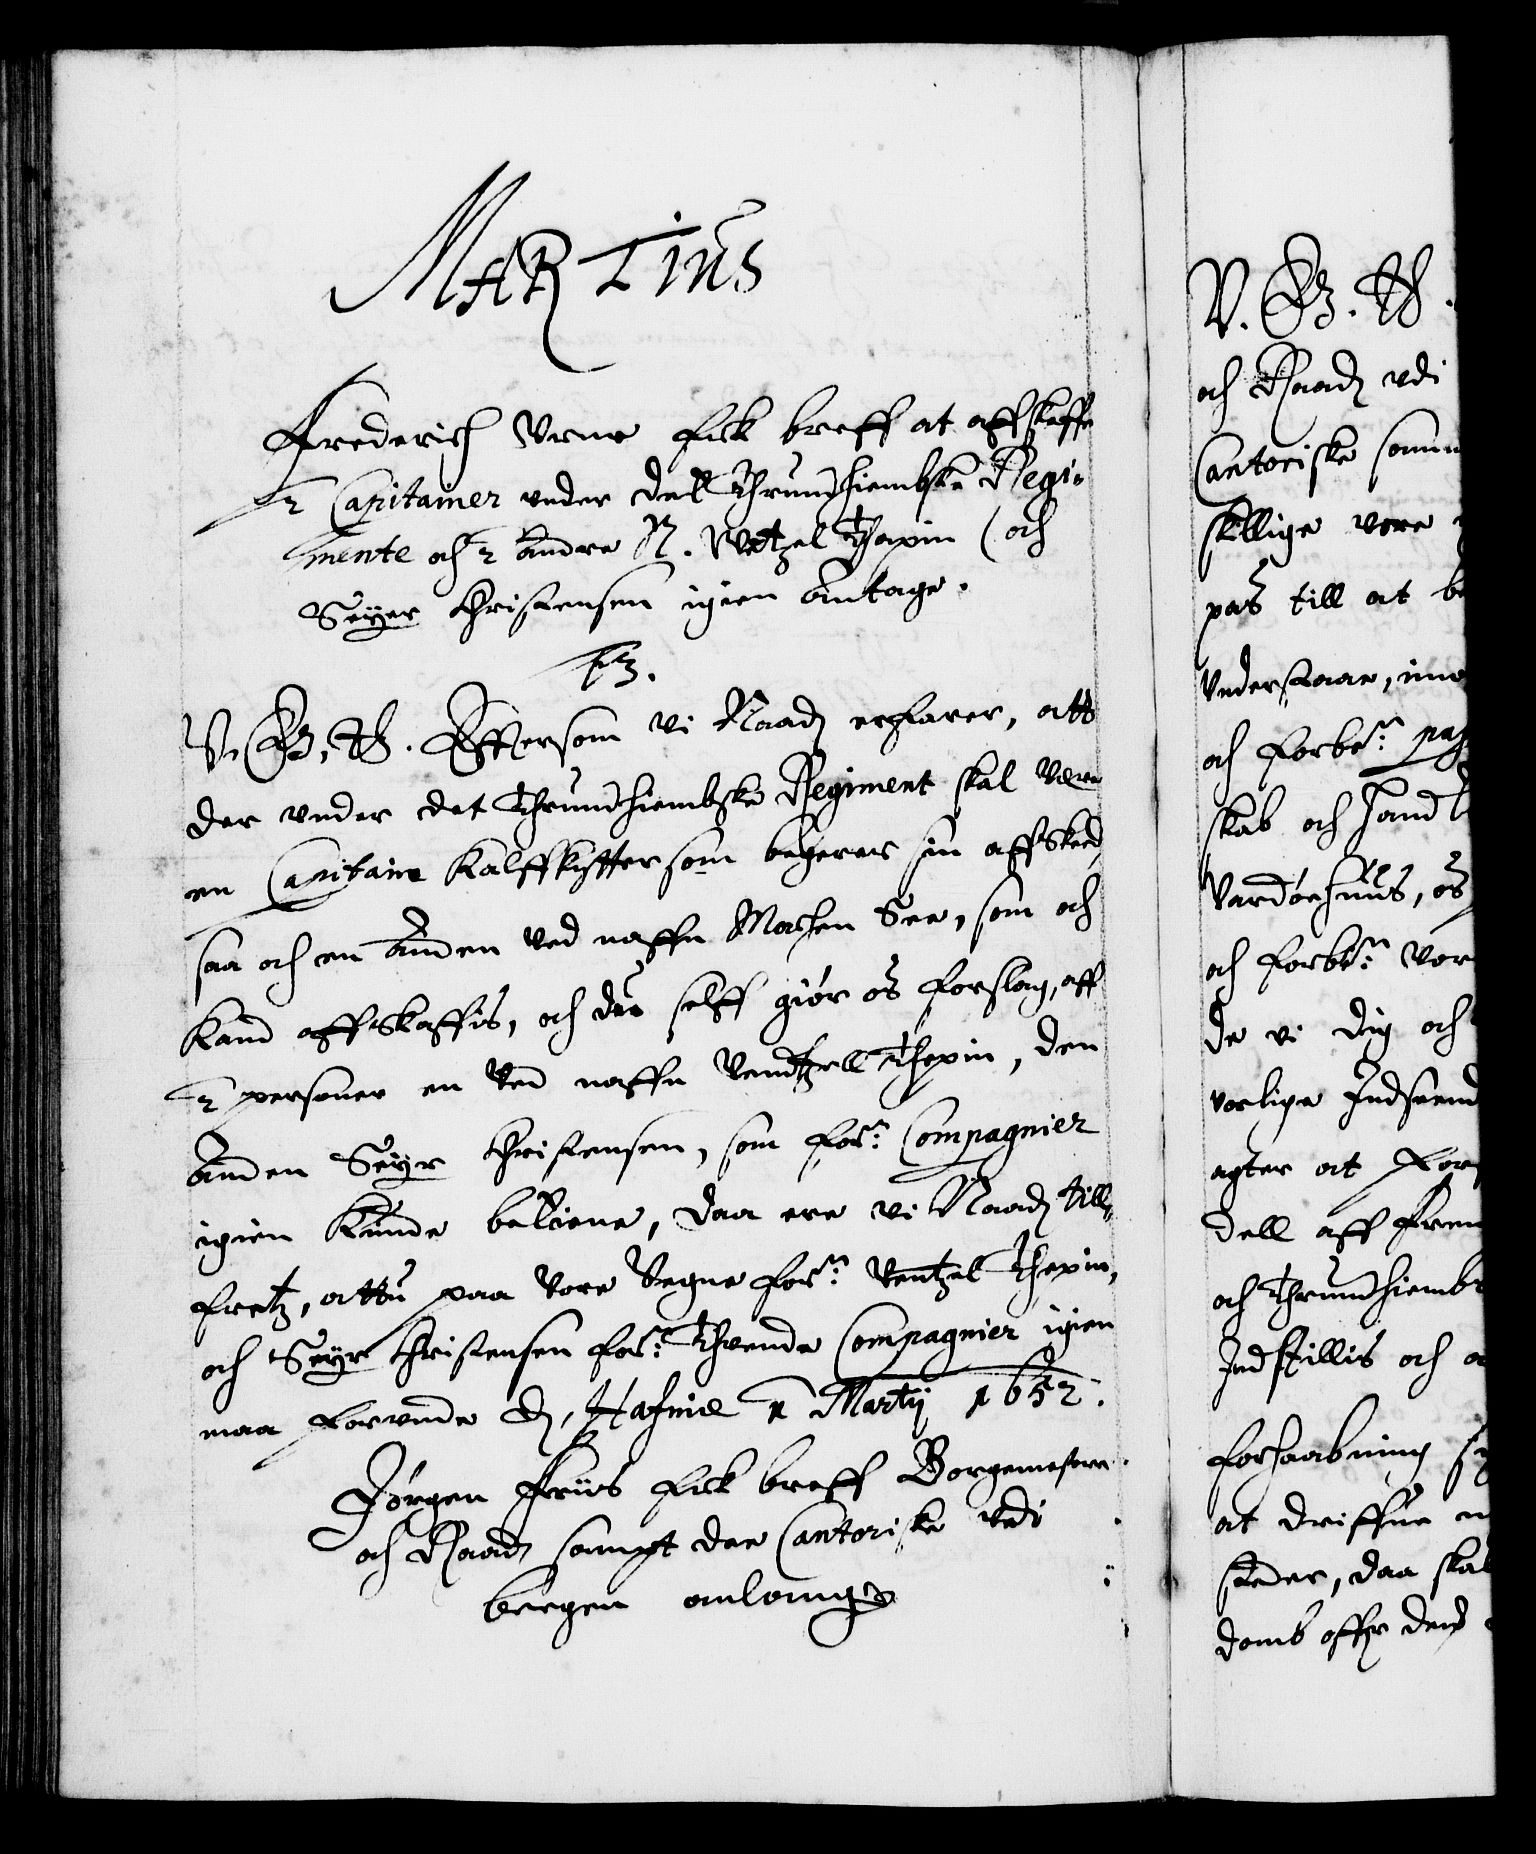 MARTIUS
Frederich Urne fick breff at affskaffe
2 Capitainer under dett Thrundhiembske Regi-
mente och 2 andre N. Wetzel Thopin (och
Seyer Christensen igien antage.
F3.
V. G. T. Effterson vi Naadt erfarer, att
der under det Thrundhiembske Regiment skal være
en Capitaine Kalffkytter som begerer sin affskeed,
saa och en anden ved naffn Mochen See, som och
kand affskaffis, och du selff giör os forslag, aff
2 personer en ved naffn Ventzell Thopin, den
anden Seyr Christensen, som forn: Compagnier
igien kunde betiene, daa ere vi Naadt till,
fretz, attu paa vore Vegne forn: Ventzel Thopin,
och Seyr Christensen forn: thvende Compagnier igien
maa forunde Dt, Hafniæ 1 Martij 1652.
Jörgen Friis fick breff Borgemestere
och Raad sampt der Cantoriske udi
bergen anlang
V. G. T.
och Raadt udi
Cantoriske somm
skillige vore
pas till at be
understaae, im
och forben: pas
skab och handt
Vardöehuus, os
och forben: vor
de vi dig och
vorlige Indseend
agter at for
dell aff frem
och Thrundhiemb
Indstillis och
forhaabning
at driffue
steder, daa skal
domb offr dend